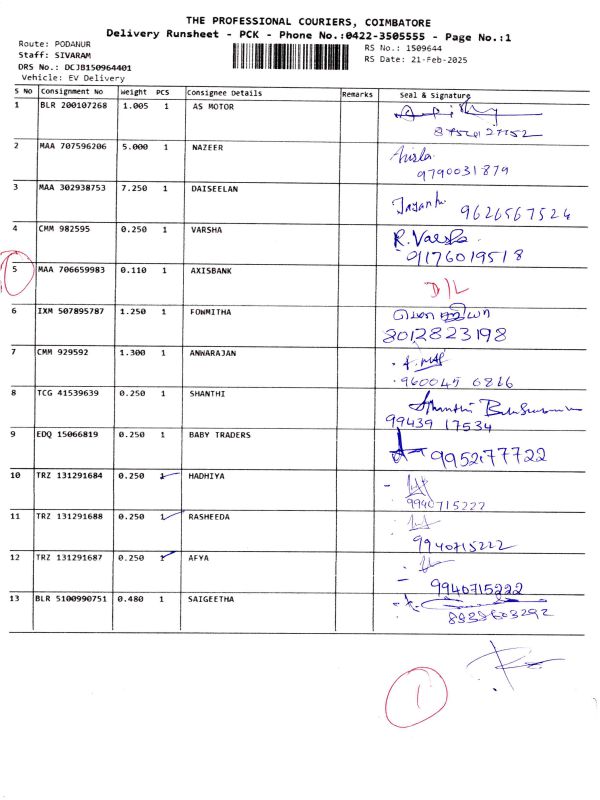 THE PROFESSIONAL COURIERS, COIMBATORE
Delivery Runsheet - PCK - Phone No.:0422-3505555 - Page No.:1
Route: PODANUR
RS No.: 1509644
Staff: SIVARAM
RS Date: 21-Feb-2025
DRS No.: DCJB150964401
Vehicle: EV Delivery
S No Consignment No Weight PCS Consignee Details Remarks Seal & Signature
1 BLR 200107268 1.005 1 AS MOTOR
2 MAA 707596206 5.000 1 NAZEER
9790031879
3 MAA 302938753 7.250 1 DAISEELAN Jayanthi 9626567524
4 CMM 982595 0.250 1 VARSHA R. Varsha
9176019518
5 MAA 706659983 0.110 1 AXISBANK D/L
6 IXM 507895787 1.250 1 FOWMITHA
8012823198
7 CMM 929592 1.300 1 ANWARAJAN
8 TCG 41539639 0.250 1 SHANTHI Shanthi
99439 17534
9 EDQ 15066819 0.250 1 BABY TRADERS 9952177722
10 TRZ 131291684 0.250 1 HADHIYA
9940715222
11 TRZ 131291688 0.250 1 RASHEEDA
9940715222
12 TRZ 131291687 0.250 1 AFYA
9940715222
13 BLR 5100990751 0.480 1 SAIGEETHA
1